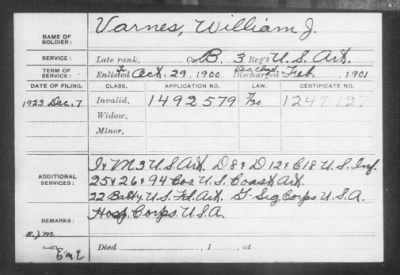 NAME OF SOLDIER: Varnes, William J.
SERVICE: Late rank, Co. B, 3 Reg't U.S. Art.
TERM OF SERVICE: Enlisted Oct. 29, 1900 Discharged Feb. , 1901
DATE OF FILING. CLASS. APPLICATION NO. LAW. CERTIFICATE NO.
1923 Dec. 7 Invalid, 1492579 1247127
Widow,
Minor,
ADDITIONAL SERVICES: I & M 3 U.S. Art. D 8 & D 12 & C 18 U.S. Inf.
25 & 26 & 94 Cos U.S. Coast Art.
22 Batty. U.S. Fd. Art. Sig Corps U.S.A.
REMARKS: Hosp. Corps. U.S.A.
Died , 1 , at